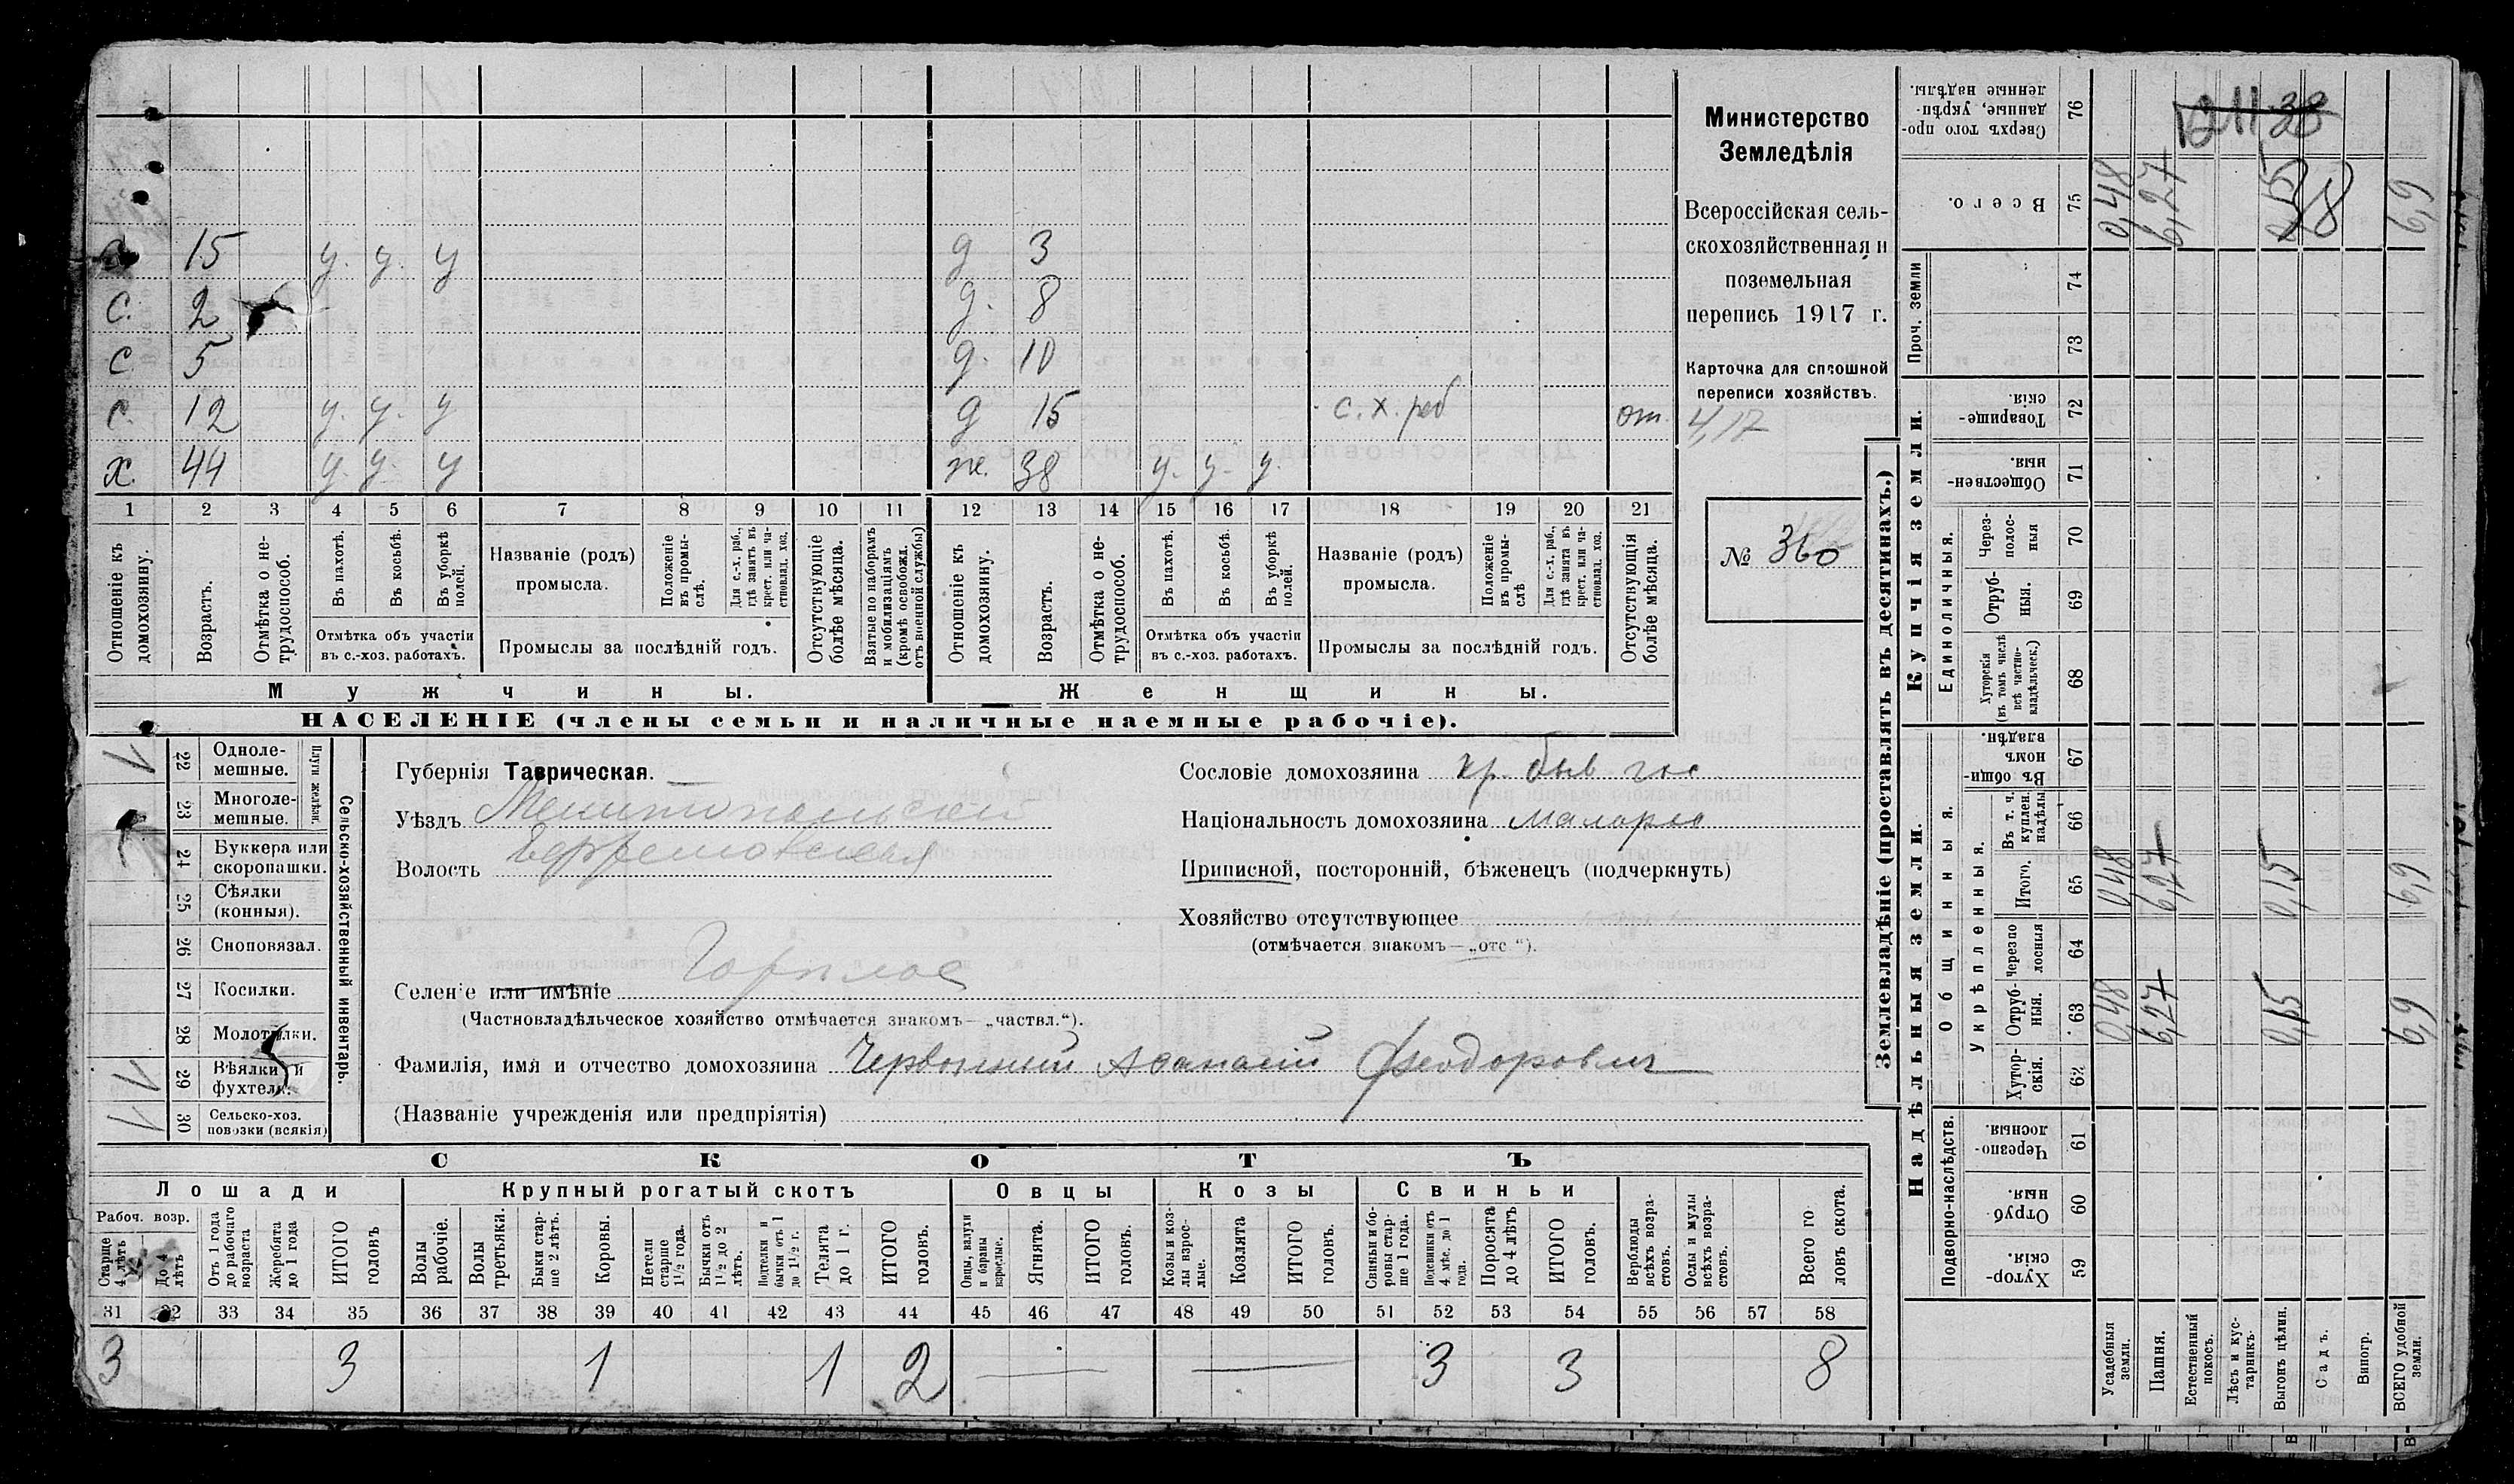 Министерство
Земледѣлія
Всероссійская сель-
скохозяйственная и
поземельная
перепись 1917 г.
Карточка для сплошной
переписи хозяйствъ.
4,17
№ 360
15 у. у. у д 3
с. 2 д. 8
с 5 д. 10
с. 12 у. у. у д 15 с. х. раб от.
х. 44 у. у. у ж. 38 у. у. у.
1 2 3 4 5 6 7 8 9 10 11 12 13 14 15 16 17 18 19 20 21
Отношеніе къ домохозяину.
Возрастъ.
Отмѣтка о не-трудоспособ.
Въ пахотѣ.
Въ косьбѣ.
Въ уборкѣ полей.
Отмѣтка объ участіи
въ с.-хоз. работахъ.
Названіе (родъ)
промысла.
Положеніе въ промы-слѣ.
Для с.-х. раб., гдѣ занятъ въ крест. или ча-стновлад. хоз.
Промыслы за послѣдній годъ.
Отсутствующіе болѣе мѣсяца.
Взятые по наборамъ и мобилизаціямъ (кромѣ освобожд. отъ военной службы)
Отношеніе къ домохозяину.
Возрастъ.
Отмѣтка о не-трудоспособ.
Въ пахотѣ.
Въ косьбѣ.
Въ уборкѣ полей.
Отмѣтка объ участіи
въ с.-хоз. работахъ.
Названіе (родъ)
промысла.
Положеніе въ промы-слѣ
Для с.-х. раб., гдѣ занята въ крест. или ча-стновлад. хоз.
Промыслы за послѣдній годъ.
Отсутствующія болѣе мѣсяца.
Мужчины.
Женщины.
НАСЕЛЕНІЕ (члены семьи и наличные наемные рабочіе).
Сельско-хозяйственный инвентарь.
Плуги желѣзн.
22 Одноле-мешные.
23 Многоле-мешные.
24 Буккера или скоропашки.
25 Сѣялки (конныя).
26 Сноповязал.
27 Косилки.
28 Молотилки.
29 Вѣялки и фухтеля.
30 Сельско-хоз. повозки (всякія)
Губернія Таврическая.
Уѣздъ Мелитопольскій
Волость Ефремовская
Селеніе или имѣніе Горплос
(Частновладѣльческое хозяйство отмѣчается знакомъ—„частвл.“).
Фамилія, имя и отчество домохозяина Червонный Афанасій Феодорович
(Названіе учрежденія или предпріятія)
Сословіе домохозяина кр. быв гос
Національность домохозяина малорос
Приписной, посторонній, бѣженец (подчеркнуть)
Хозяйство отсутствующее
(отмѣчается знакомъ—„отс“).
СКОТЪ
Лошади
Крупный рогатый скотъ
Овцы
Козы
Свиньи
Рабоч. возр.
Старше 4 лѣтъ
До 4 лѣтъ
Отъ 1 года до рабочаго возраста
Жеребята до 1 года
ИТОГО головъ
Волы рабочіе.
Волы третьяки.
Быки стар-ше 2 лѣтъ.
Коровы.
Нетели старше 1½ года.
Бычки отъ 1½ до 2 лѣтъ.
Подтелки и бычки отъ 1 до 1½ г.
Телята до 1 г.
ИТОГО головъ.
Овцы, валухи и бараны взрослые.
Ягнята.
ИТОГО головъ.
Козы и коз-лы взрос-лые.
Козлята
ИТОГО головъ.
Свиньи и бо-ровы стар-ше 1 года.
Подсвинки отъ 4 мѣс. до 1 года.
Поросята до 4 лѣтъ
ИТОГО головъ.
Верблюды всѣхъ возра-стовъ.
Ослы и мулы всѣхъ возра-стовъ.
Всего го-ловъ скота.
31 32 33 34 35 36 37 38 39 40 41 42 43 44 45 46 47 48 49 50 51 52 53 54 55 56 57 58
3 3 1 1 2 — — 3 3 8
Землевладѣніе (проставлять въ десятинахъ.)
Надѣльныя земли.
Купчія земли.
Проч. земли
Подворно-наслѣдств.
Общинныя.
Укрѣпленныя.
Единоличныя.
Сверхъ того про-данные, укрѣп-ленные надѣлы. 76
Всего. 75
74
73
Товарище-скія. 72
Обществен-ныя. 71
Через-полос-ныя 70
Отруб-ныя. 69
Хуторскія (въ томъ числѣ всѣ частно-владѣльческ.) 68
Въ общин-номъ владѣн. 67
Въ т. ч. куплен. надѣлы 66
Итого. 65
Черезпо лосныя 64
Отруб-ныя. 63
Хутор-скія. 62
Черезпо-лосныя. 61
Отруб ныя. 60
Хутор-скія. 59
Усадебныя земли.
Пашня.
Естественный покосъ.
Лѣсъ и кус-тарникъ.
Выгонъ цѣлин.
Садъ.
Виногр.
ВСЕГО удобной земли.
0,48 6,27 6,9
0,48 6,27 0,15 6,9
0,48 6,27 0,15 6,9